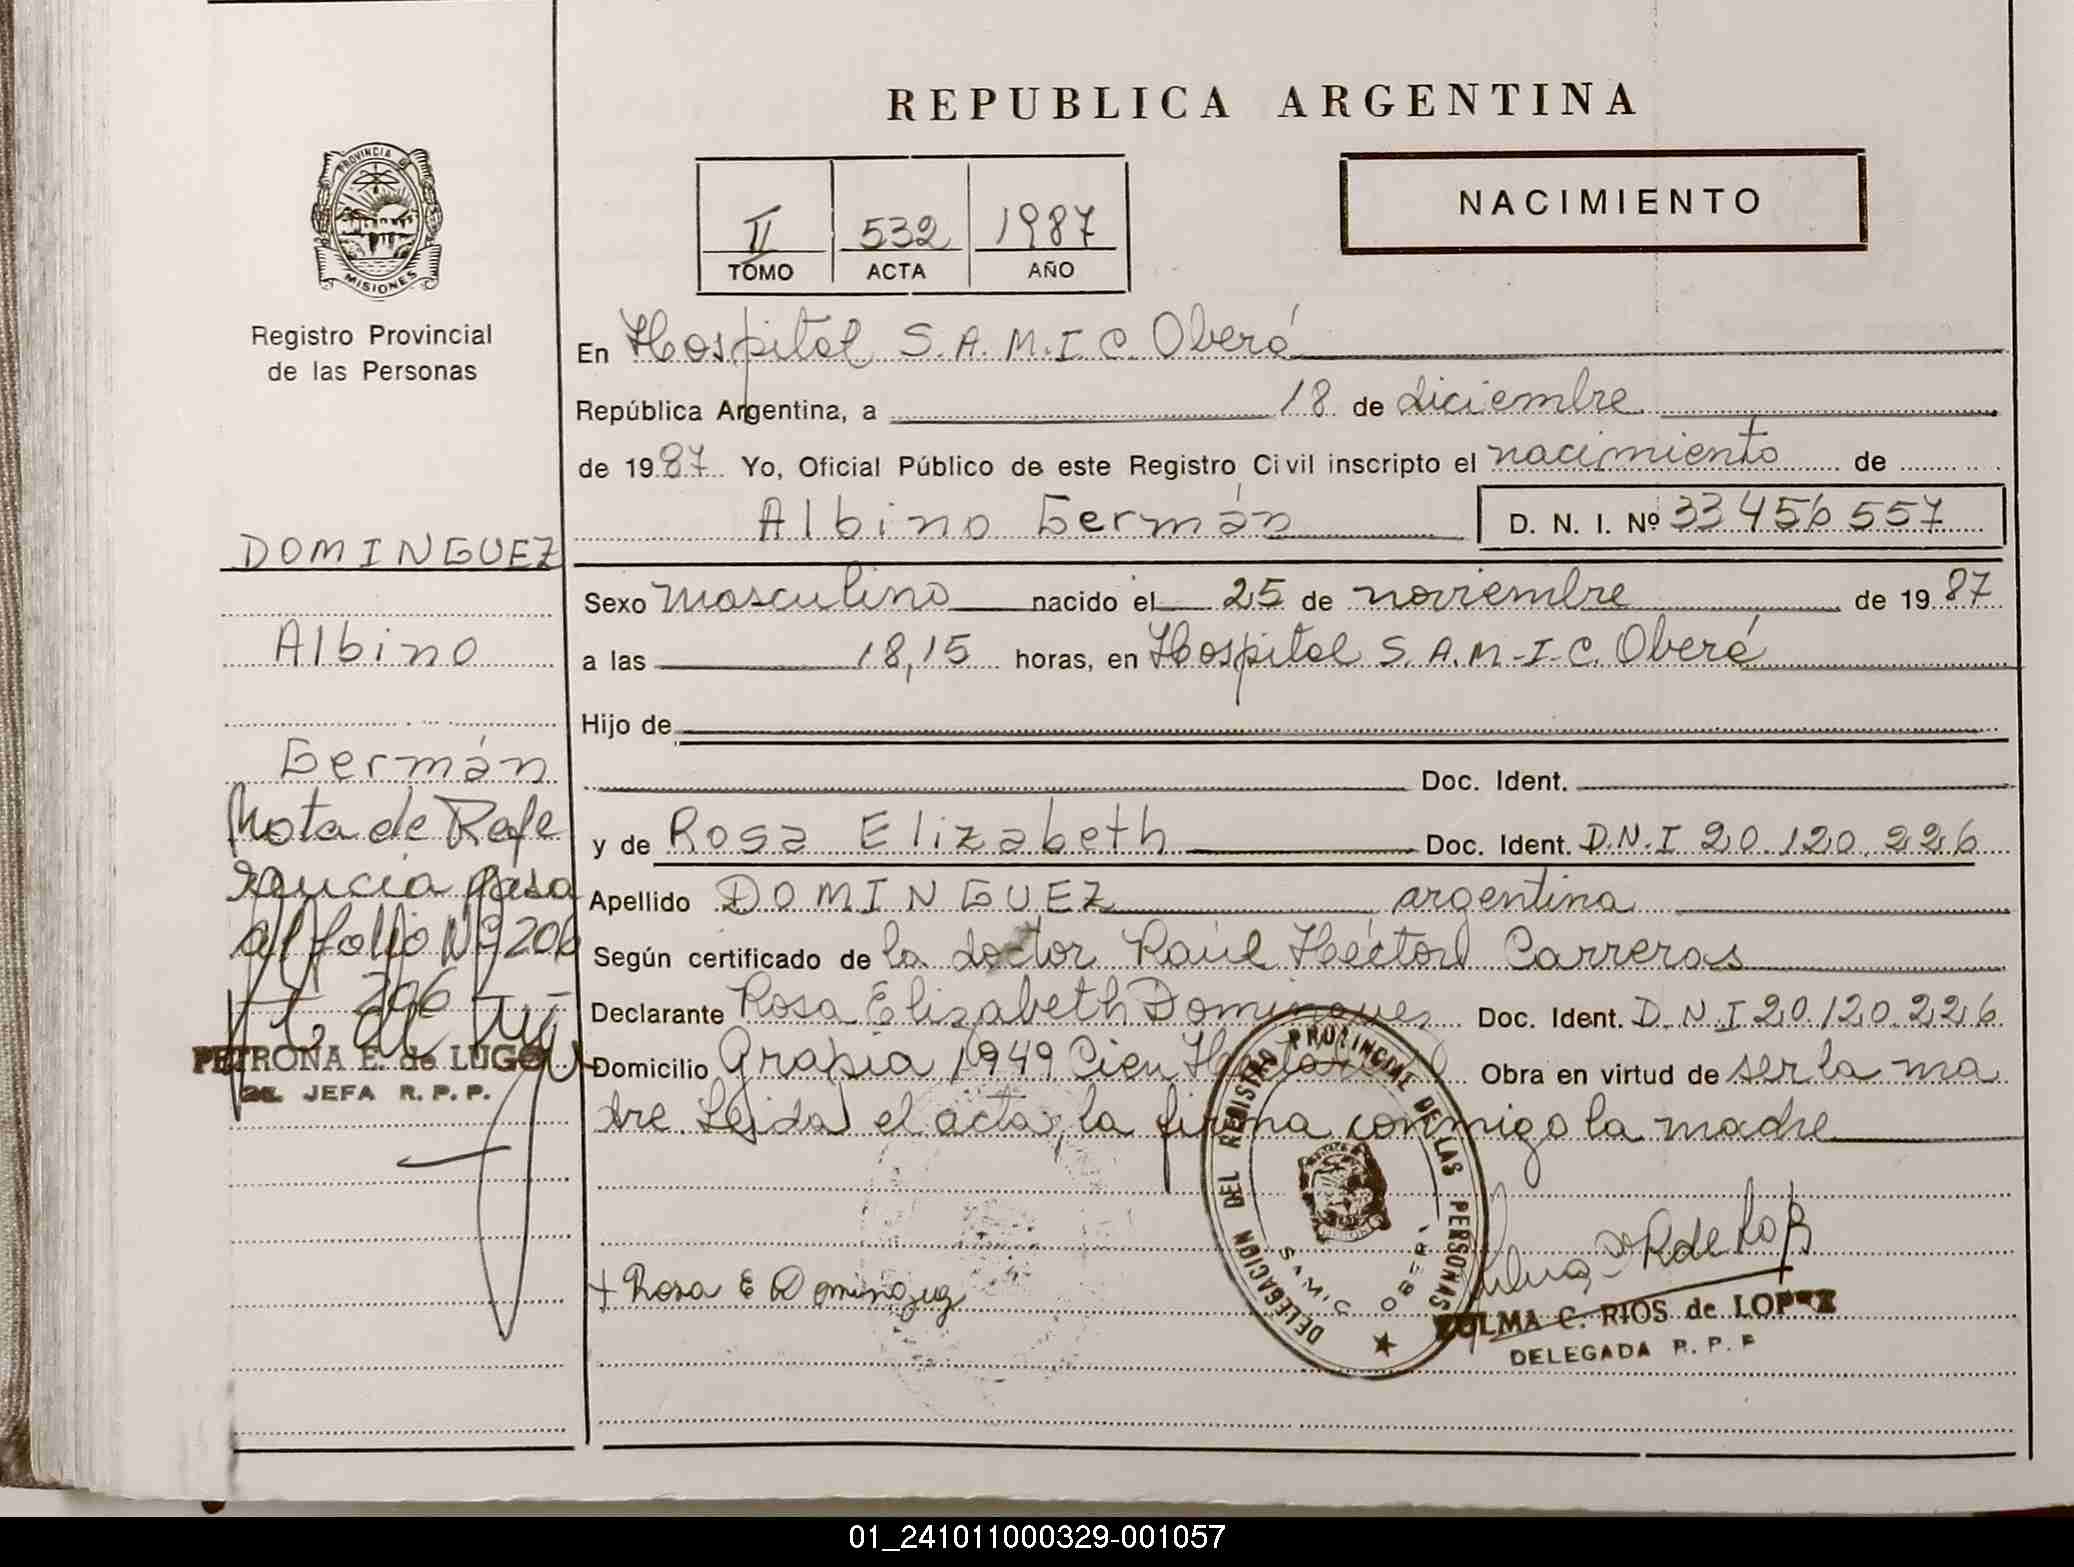 REPUBLICA ARGENTINA
NACIMIENTO
PROVINCIA DE
MISIONES
Registro Provincial
de las Personas
II 532 1987
TOMO ACTA AÑO
En Hospital S.A.M.I.C. Oberá
República Argentina, a 18 de diciembre
de 1987. Yo, Oficial Público de este Registro Civil inscripto el nacimiento de
Albino Germán D. N. I. Nº 33 456 557
Sexo masculino nacido el 25 de noviembre de 1987
a las 18,15 horas, en Hospital S.A.M-I-C. Oberá
Hijo de
Doc. Ident.
y de Rosa Elizabeth Doc. Ident. D.N.I 20.120.226
Apellido DOMINGUEZ argentina
Según certificado de la doctor Raúl Héctor Carreras
Declarante Rosa Elizabeth Dominguez Doc. Ident. D.N.I 20.120.226
Domicilio Grapia 1949 Cien Obra en virtud de ser la ma
dre. Leida el acta, la firma conmigo la madre
+ Rosa E Dominguez
DELEGACION DEL REGISTRO PROVINCIAL DE LAS PERSONAS
SAMIC OBERA
ZULMA C. RIOS de LOPEZ
DELEGADA R. P. P
DOMINGUEZ
Albino
Germán
Nota de Refe
rencia pasa
al folio Nº 206
206
PETRONA E. de LUGO
JEFA R. P. P.
01_241011000329-001057